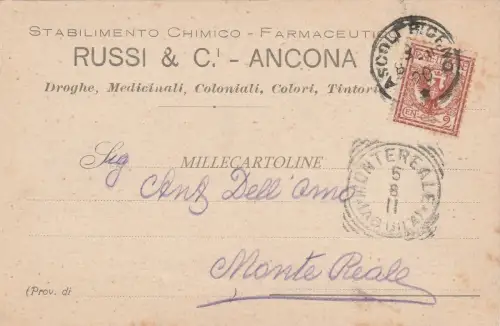 STABILIMENTO CHIMICO - FARMACEUTI
RUSSI & C.i - ANCONA
Droghe, Medicinali, Coloniali, Colori, Tintori
ASCOLI PICENO
2
MILLECARTOLINE
Sig
Dell'amo
MONTEREALE
5
8
11
Monte Reale
(Prov. di